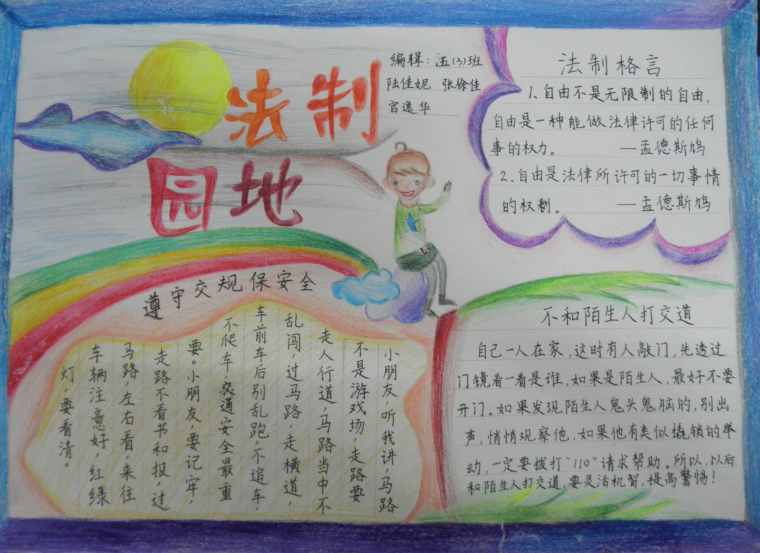 法制
园地
编辑：伍(3)班
陆佳妮
法制格言
1、自由不是无限制的自由，
自由是一种能做法律许可的任何
事的权力。 —孟德斯鸠
2、自由是法律所许可的一切事情
的权利。 —孟德斯鸠
遵守交规保安全
小朋友，听我讲，马路
不是游戏场，走路要
走人行道，马路当中不
乱闯，过马路，走横道，
车前车后别乱跑，不追车，
不爬车，交通安全最重
要。小朋友，要记牢，
走路不看书和报，过
马路左右看，来往
车辆注意好，红绿
灯，要看清。
不和陌生人打交道
自己一人在家，这时有人敲门，先透过
门镜看一看是谁，如果是陌生人，最好不要
开门。如果发现陌生人鬼头鬼脑的，别出
声，悄悄观察他，如果他有类似撬锁的举
动，一定要拨打“110”请求帮助。所以，以后
和陌生人打交道，要灵活机智，提高警惕！